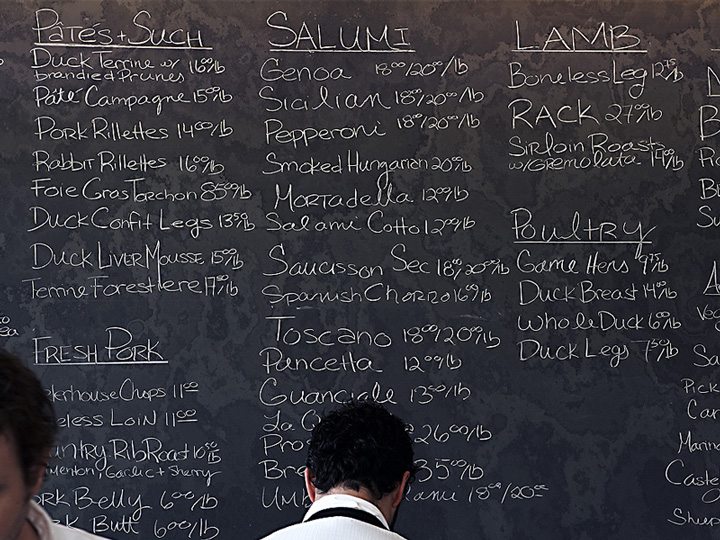 Pâtés + Such
Duck Terrine w/ 16⁰⁰/lb
brandied Prunes
Pâte Campagne 15⁰⁰/lb
Pork Rillettes 14⁰⁰/lb
Rabbit Rillettes 16⁰⁰/lb
Foie Gras Torchon 85⁰⁰/lb
Duck Confit Legs 13⁵⁰/lb
Duck Liver Mousse 15⁰⁰/lb
Terrine Forestiere 17⁵⁰/lb
Fresh Pork
Chops 11⁰⁰
Loin 11⁰⁰
Rib Roast
Garlic + Sherry
Belly 6⁰⁰/lb
Butt 6⁰⁰/lb
SALUMI
Genoa 18⁰⁰/20⁰⁰/lb
Sicilian 18⁰⁰/20⁰⁰/lb
Pepperoni 18⁰⁰/20⁰⁰/lb
Smoked Hungarian 20⁰⁰/lb
Mortadella 12⁰⁰/lb
Salami Cotto 12⁰⁰/lb
Saucisson Sec 18⁰⁰/20⁰⁰/lb
Spanish Chorizo 16⁰⁰/lb
Toscano 18⁰⁰/20⁰⁰/lb
Pancetta 12⁰⁰/lb
Guanciale 13⁵⁰/lb
La
Pros 26⁰⁰/lb
Bre 35⁰⁰/lb
Umb ami 18⁰⁰/20⁰⁰
LAMB
Boneless Leg 12⁷⁵/lb
RACK 27⁰⁰/lb
Sirloin Roast
w/Gremolata 14⁰⁰/lb
Poultry
Game Hens 9⁷⁵/lb
Duck Breast 14⁰⁰/lb
Whole Duck 6⁰⁰/lb
Duck Legs 7⁵⁰/lb